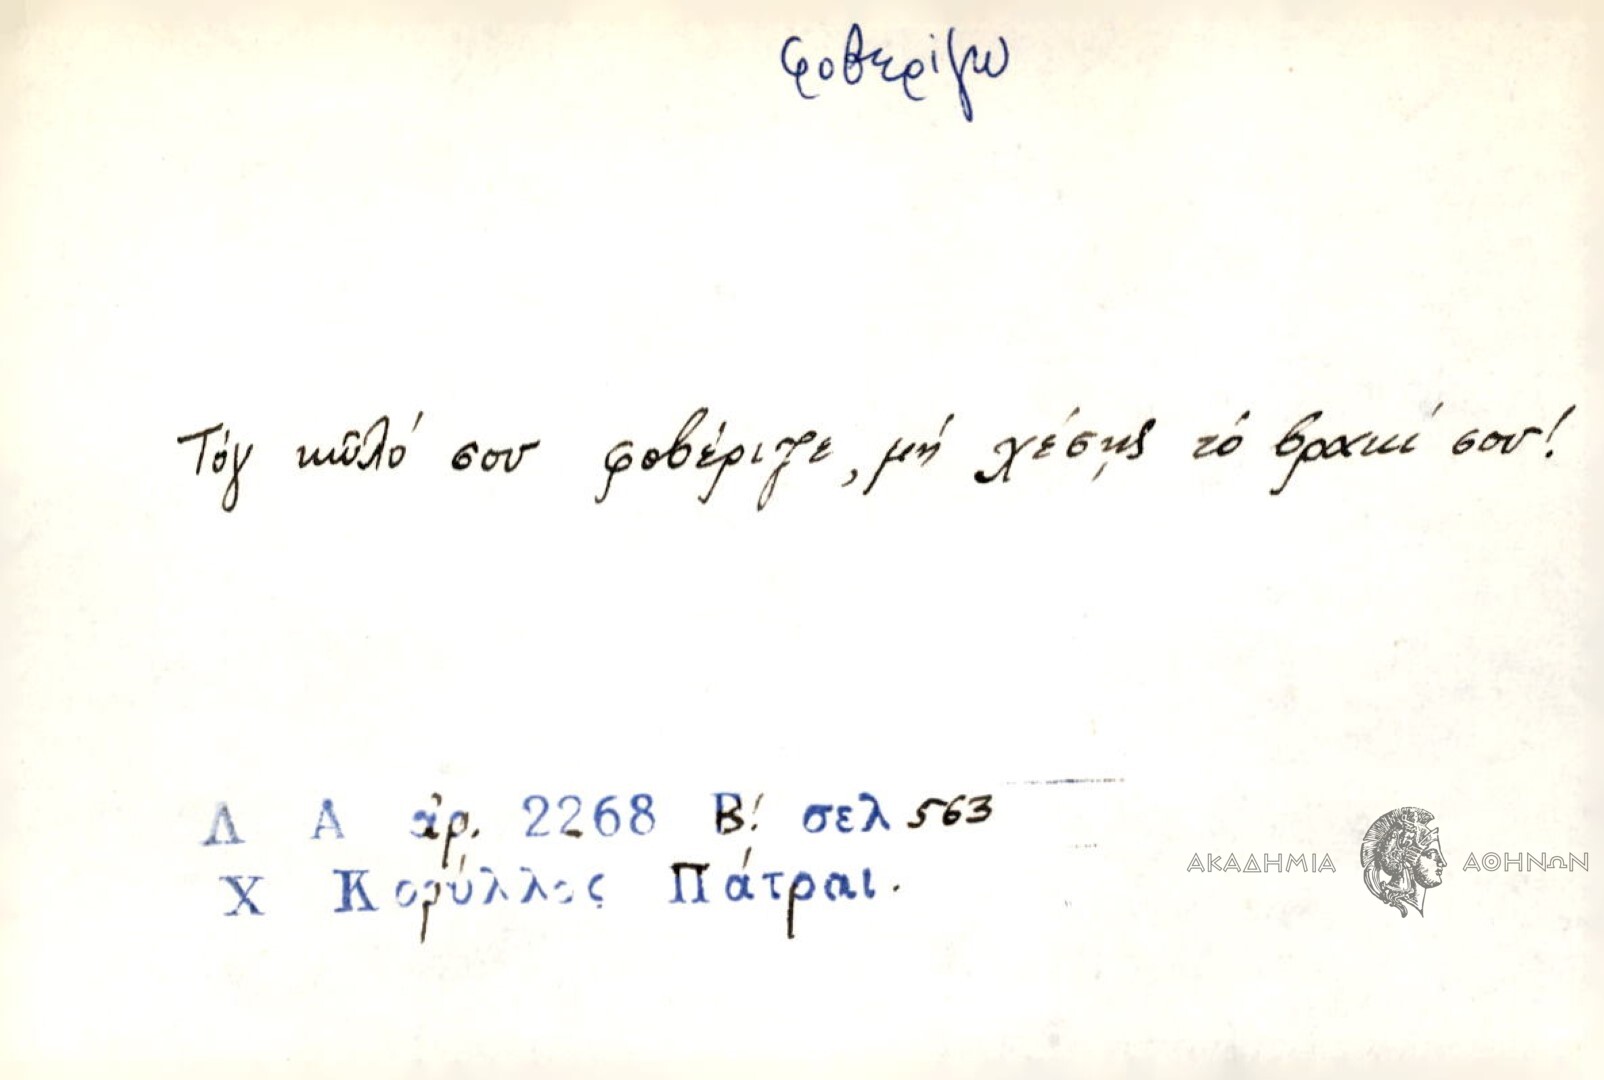 φοβερίζω
Τόγ κῶλό σου φοβέριζε, μή χέσῃς τό βρακί σου!
Λ Α ἀρ. 2268 Β! σελ 563
Χ Κορύλλος Πάτραι.
ΑΚΑΔΗΜΙΑ ΑΘΗΝΩΝ